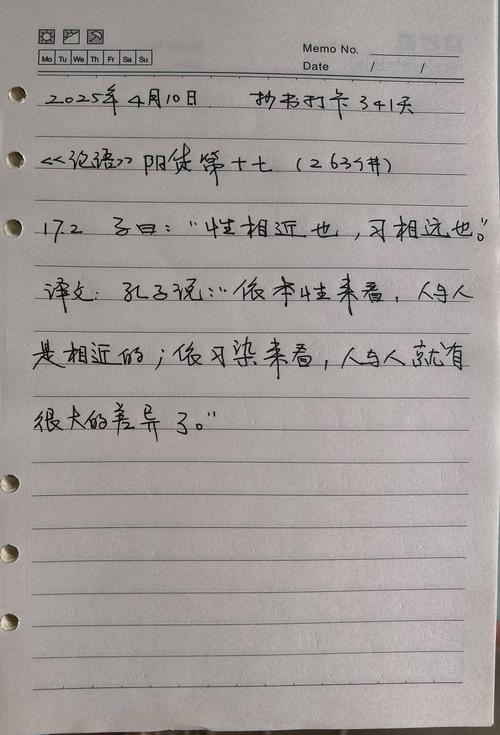 Mo Tu We Th Fr Sa Su
Memo No.
Date / /
2025年4月10日 抄书打卡341天
《论语》阳货第十七（263个井）
17.2 子曰："性相近也，习相远也。"
译文：孔子说："依本性来看，人与人
是相近的；依习染来看，人与人就有
很大的差异了。"